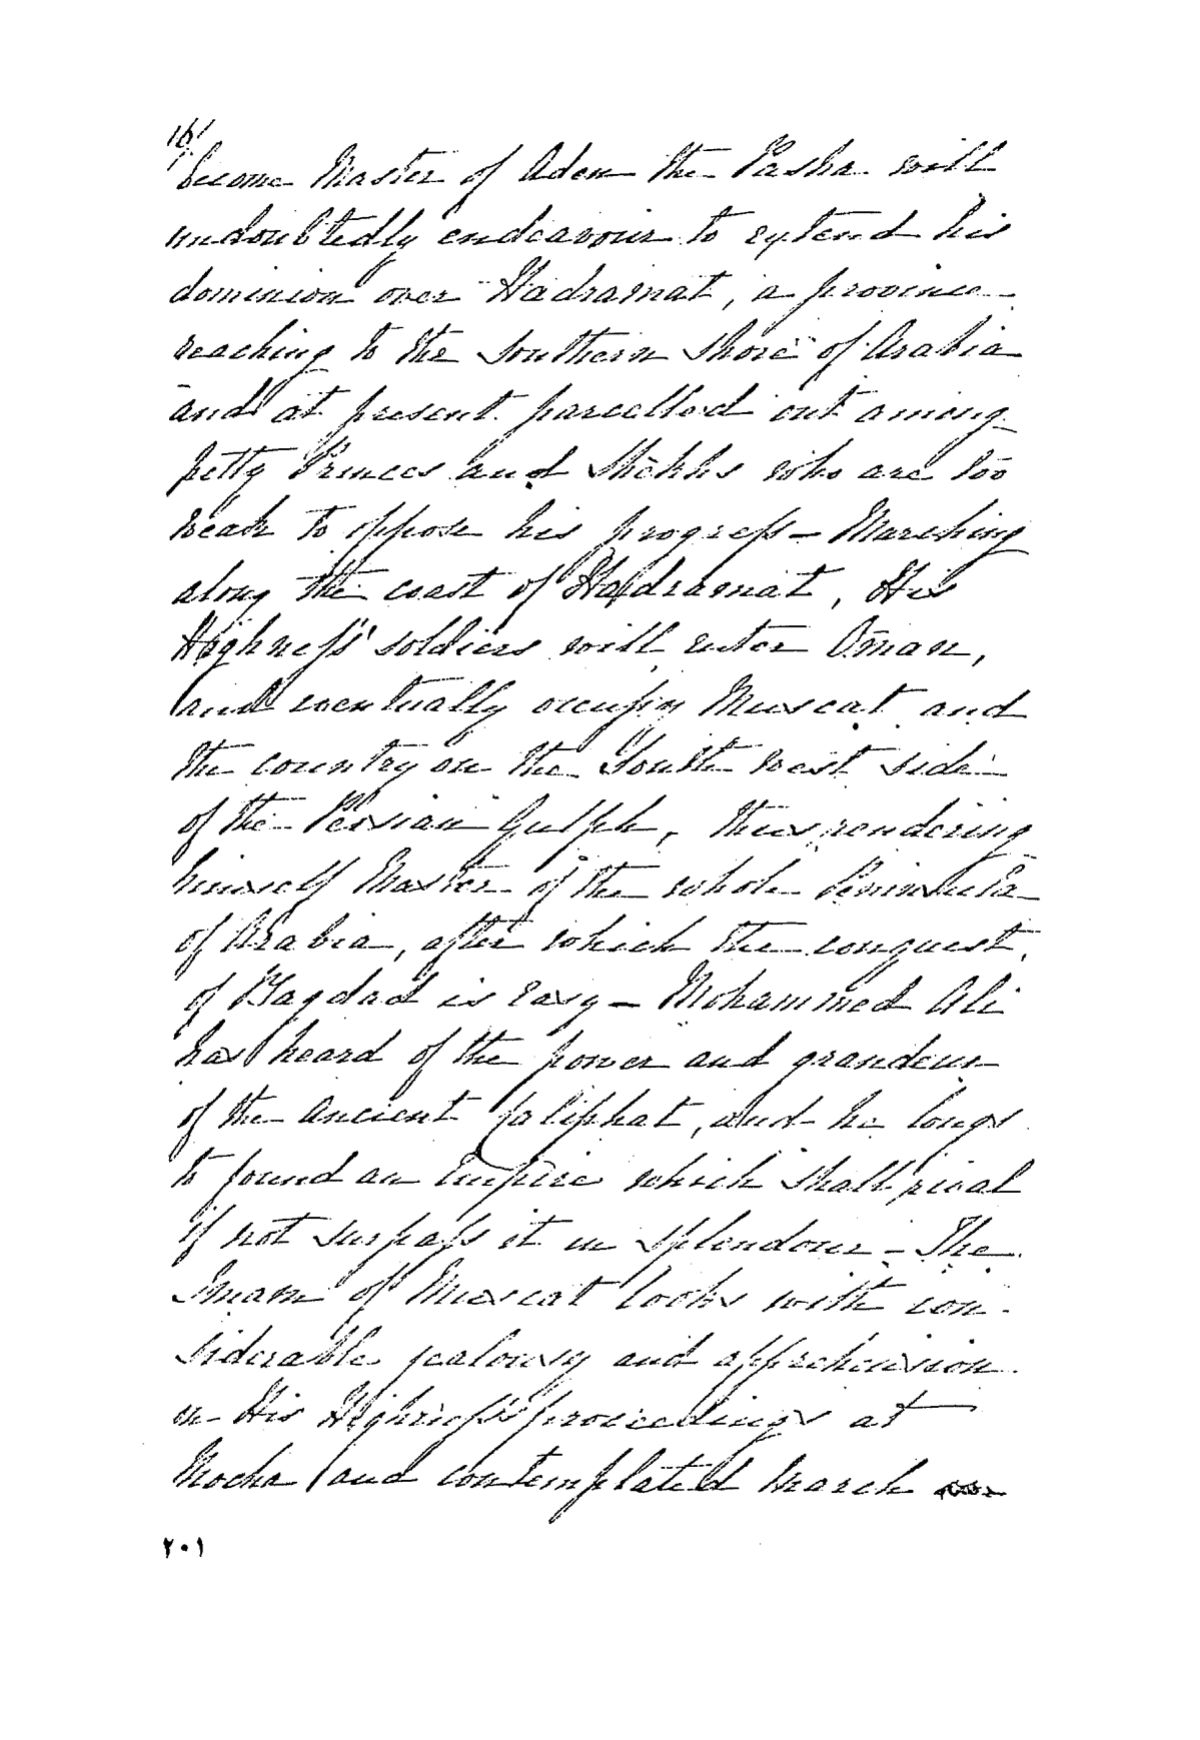 16/
become Master of Aden the Pasha will
undoubtedly endeavour to extend his
dominion over Hadramat, a province
reaching to the Southern Shore of Arabia
and at present parcelled out among
petty Princes and Shekhs who are too
weak to oppose his progress – Marching
along the coast of Hadramat, His
Highness' soldiers will enter Oman,
and eventually occupy Muscat and
the country on the South West side
of the Persian Gulph, thus rendering
himself Master of the whole Peninsula
of Arabia, after which the conquest
of Bagdad is easy – Mohammed Ali
has heard of the power and grandeur
of the Ancient Caliphat, and he longs
to found an Empire which shall rival
if not surpass it in Splendour – The
Imam of Muscat looks with con-
siderable jealousy and apprehension
on His Highness' proceedings at
Mocha and contemplated March
٢٠١